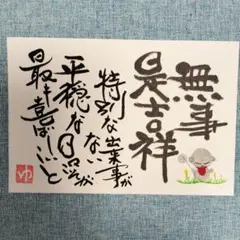 無事
是吉祥
特別な出来事が
ない
平穏な日常が
最も喜ばしいと
ゆ